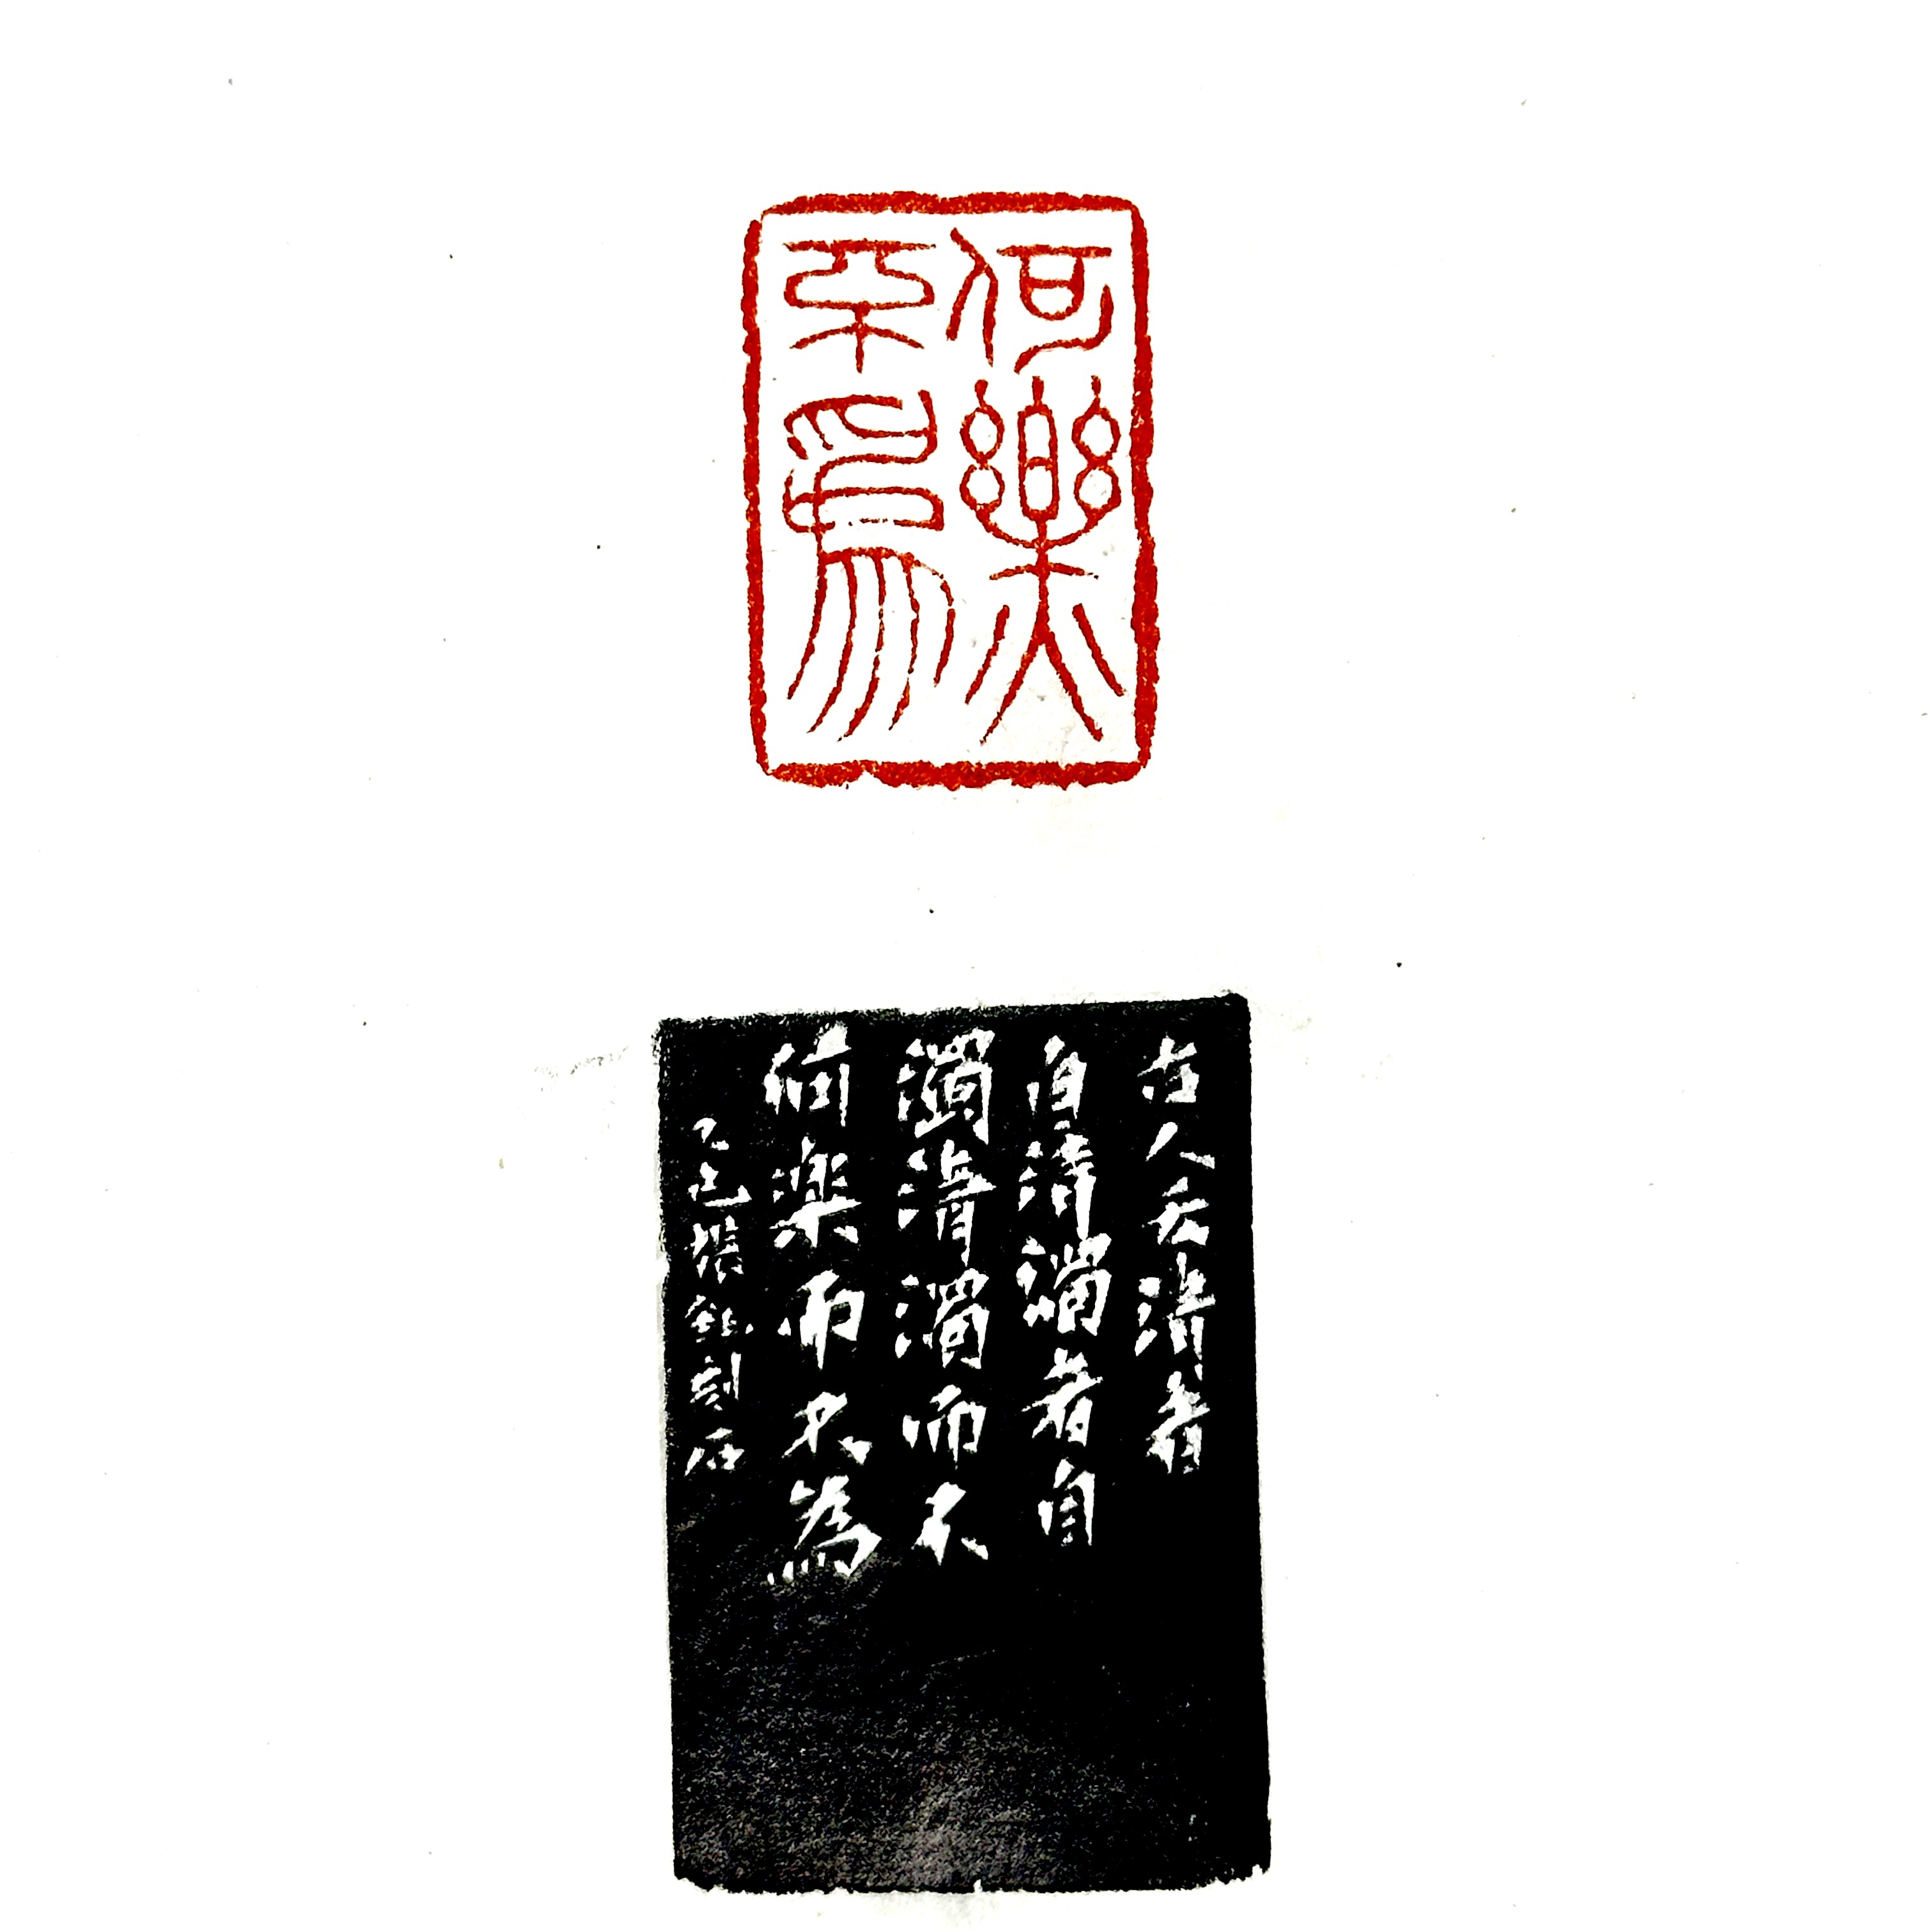 何樂
不為
古人云清者
自清濁者自
濁清濁而不
何樂而不為
乙巳刻石